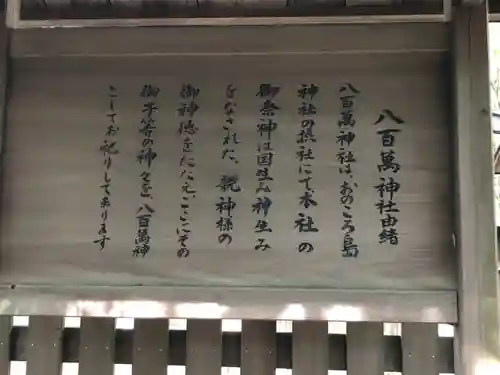 八百萬神社由緒
八百萬神社は、おのころ島
神社の摂社にて本社の
御祭神は国生み神生み
をなされた、親神様の
御神徳をたたえ、ここにその
御子等の神々を、八百萬神
としてお祀りして来ります